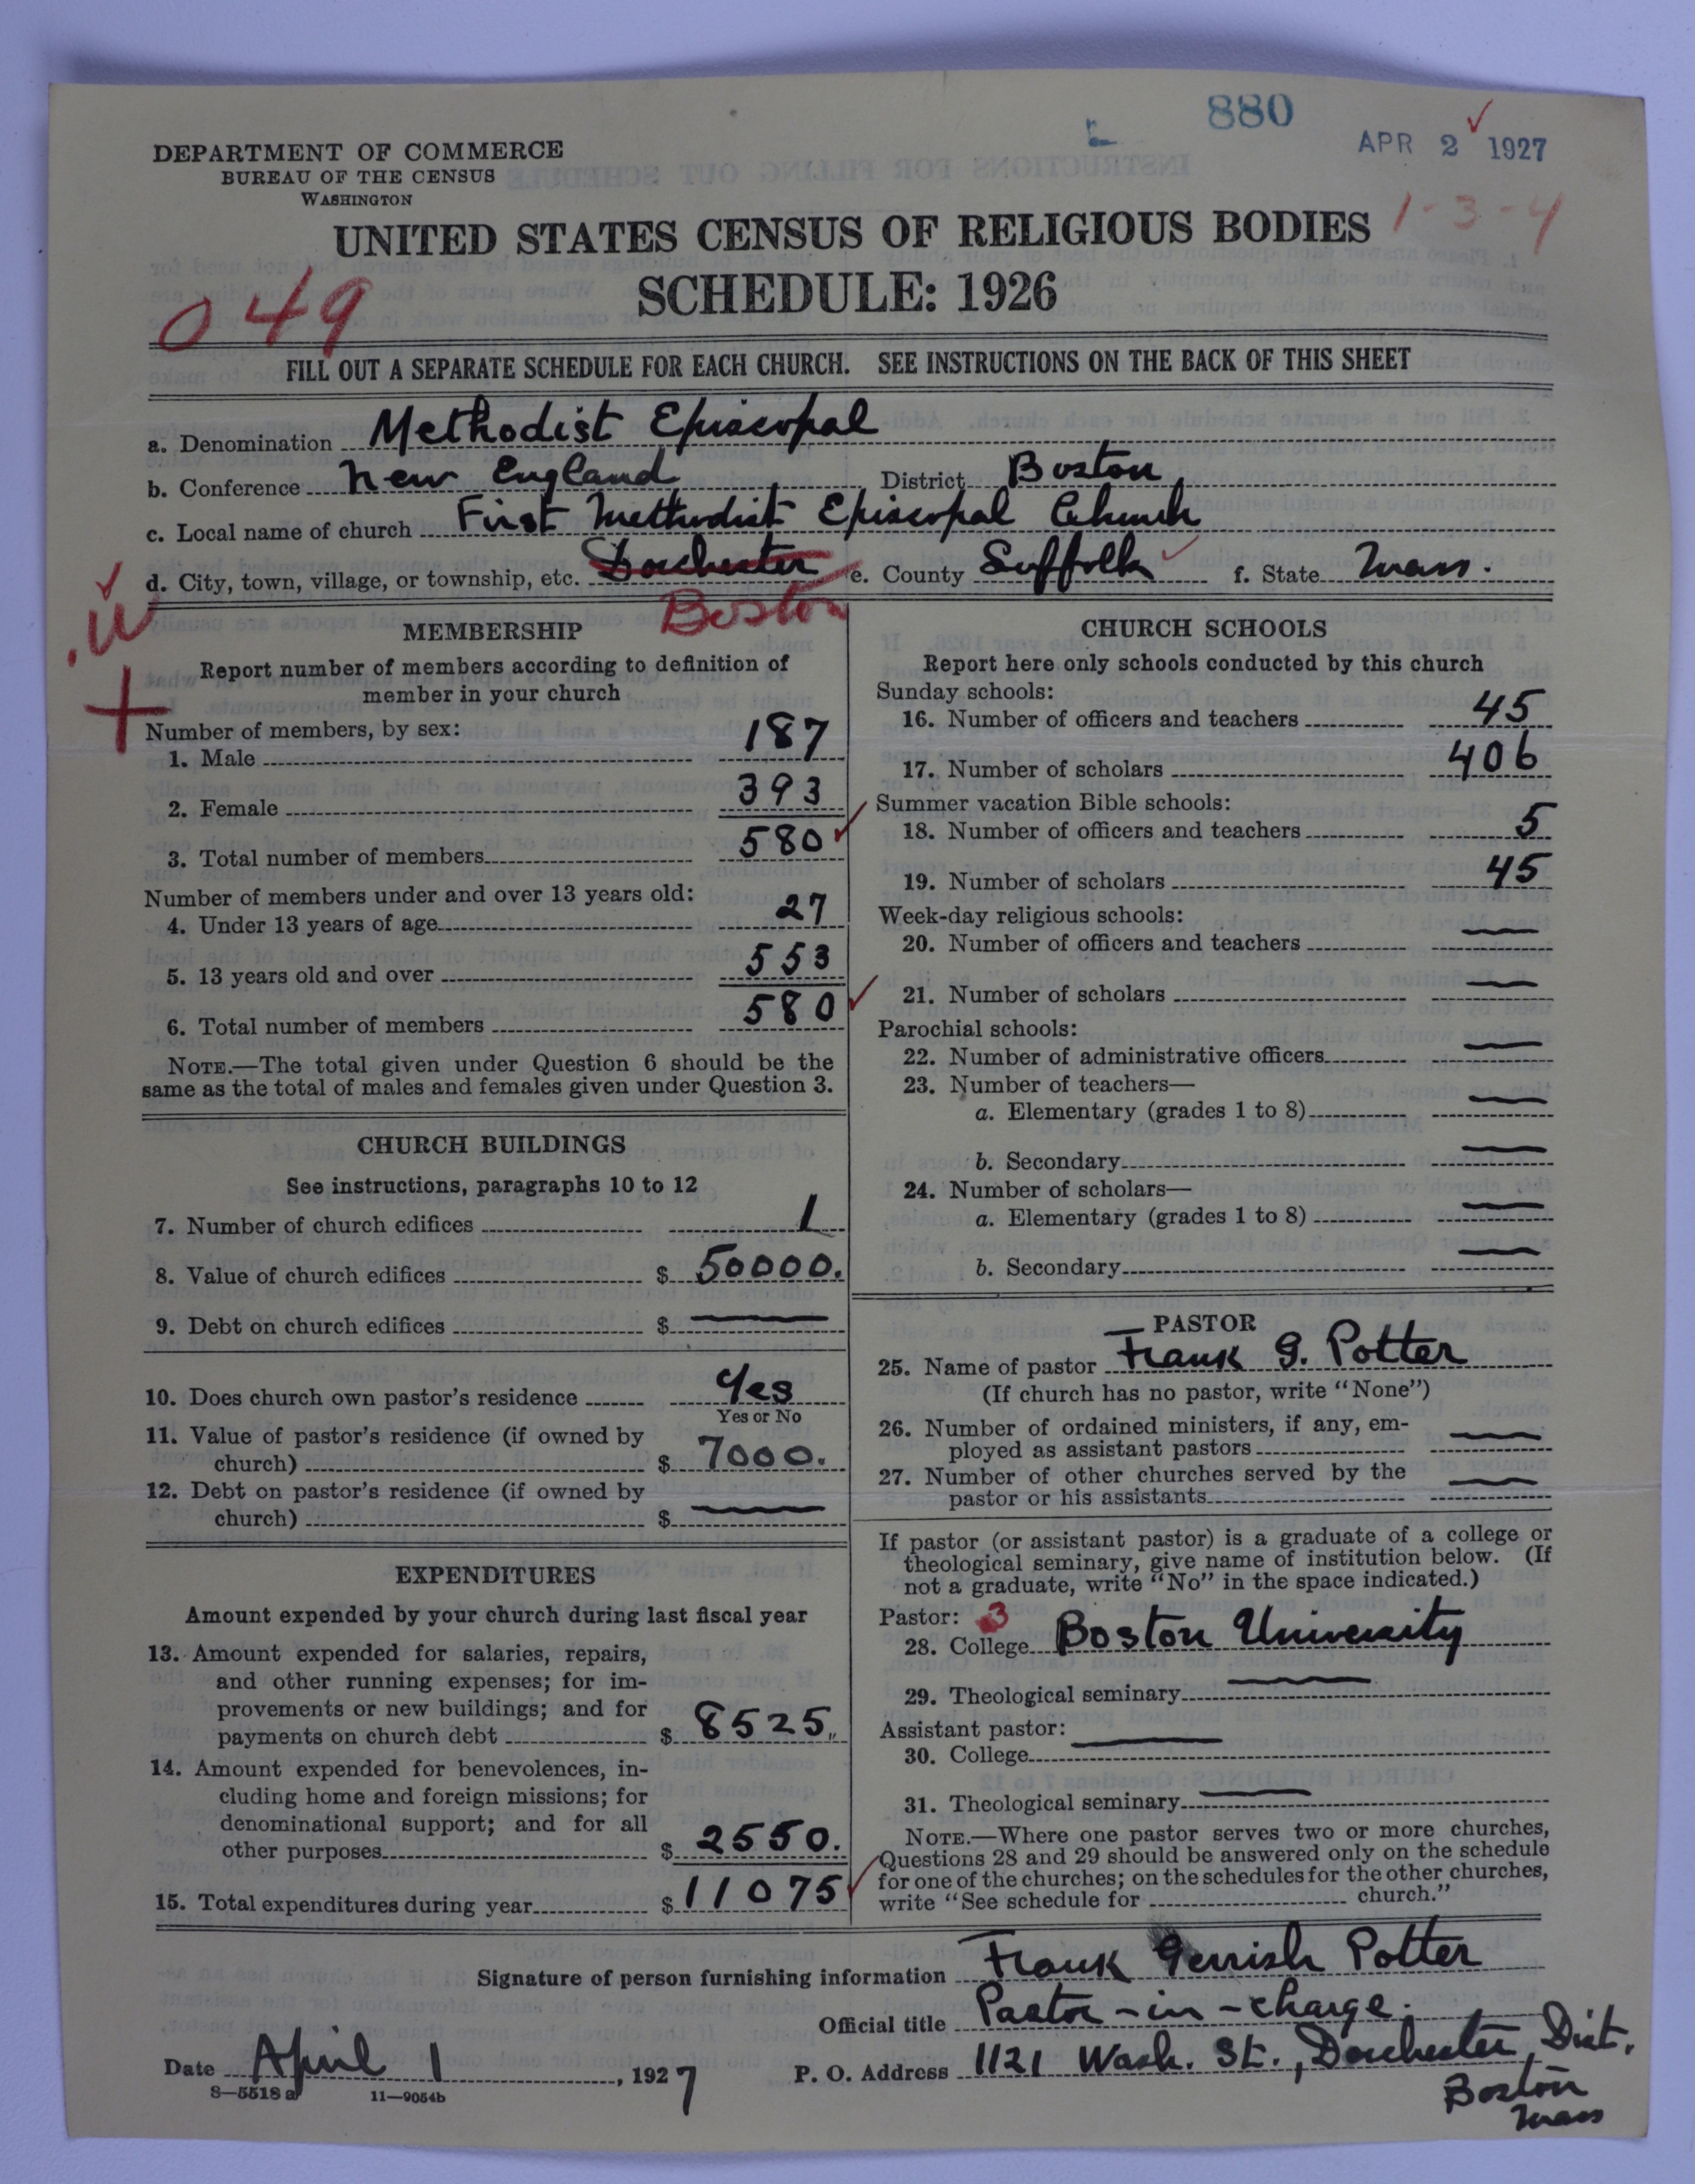 880
APR 2 1927
DEPARTMENT OF COMMERCE
BUREAU OF THE CENSUS
WASHINGTON
1-3-4
UNITED STATES CENSUS OF RELIGIOUS BODIES
SCHEDULE: 1926
049
FILL OUT A SEPARATE SCHEDULE FOR EACH CHURCH. SEE INSTRUCTIONS ON THE BACK OF THIS SHEET
a. Denomination Methodist Episcopal
b. Conference New England District Boston
c. Local name of church First Methodist Episcopal Church
d. City, town, village, or township, etc. Dorchester e. County Suffolk f. State Mass.
Boston
MEMBERSHIP
Report number of members according to definition of
member in your church
Number of members, by sex:
1. Male 187
2. Female 393
3. Total number of members 580
Number of members under and over 13 years old:
4. Under 13 years of age 27
5. 13 years old and over 553
6. Total number of members 580
NOTE.—The total given under Question 6 should be the
same as the total of males and females given under Question 3.
CHURCH BUILDINGS
See instructions, paragraphs 10 to 12
7. Number of church edifices 1
8. Value of church edifices $ 50000.
9. Debt on church edifices $ —
10. Does church own pastor's residence Yes
Yes or No
11. Value of pastor's residence (if owned by
church) $ 7000.
12. Debt on pastor's residence (if owned by
church) $ —
EXPENDITURES
Amount expended by your church during last fiscal year
13. Amount expended for salaries, repairs,
and other running expenses; for im-
provements or new buildings; and for
payments on church debt $ 8525.
14. Amount expended for benevolences, in-
cluding home and foreign missions; for
denominational support; and for all
other purposes $ 2550.
15. Total expenditures during year $ 11075
CHURCH SCHOOLS
Report here only schools conducted by this church
Sunday schools:
16. Number of officers and teachers 45
17. Number of scholars 406
Summer vacation Bible schools:
18. Number of officers and teachers 5
19. Number of scholars 45
Week-day religious schools:
20. Number of officers and teachers —
21. Number of scholars —
Parochial schools:
22. Number of administrative officers —
23. Number of teachers—
a. Elementary (grades 1 to 8) —
b. Secondary —
24. Number of scholars—
a. Elementary (grades 1 to 8) —
b. Secondary —
PASTOR
25. Name of pastor Frank G. Potter
(If church has no pastor, write "None")
26. Number of ordained ministers, if any, em-
ployed as assistant pastors —
27. Number of other churches served by the
pastor or his assistants —
If pastor (or assistant pastor) is a graduate of a college or
theological seminary, give name of institution below. (If
not a graduate, write "No" in the space indicated.)
Pastor: 3
28. College Boston University
29. Theological seminary —
Assistant pastor:
30. College —
31. Theological seminary —
NOTE.—Where one pastor serves two or more churches,
Questions 28 and 29 should be answered only on the schedule
for one of the churches; on the schedules for the other churches,
write "See schedule for ---------- church."
Signature of person furnishing information Frank Gerrish Potter
Official title Pastor-in-charge.
Date April 1, 1927 P. O. Address 1121 Wash. St., Dorchester Dist.
Boston
Mass
8—5518 a 11—9054b